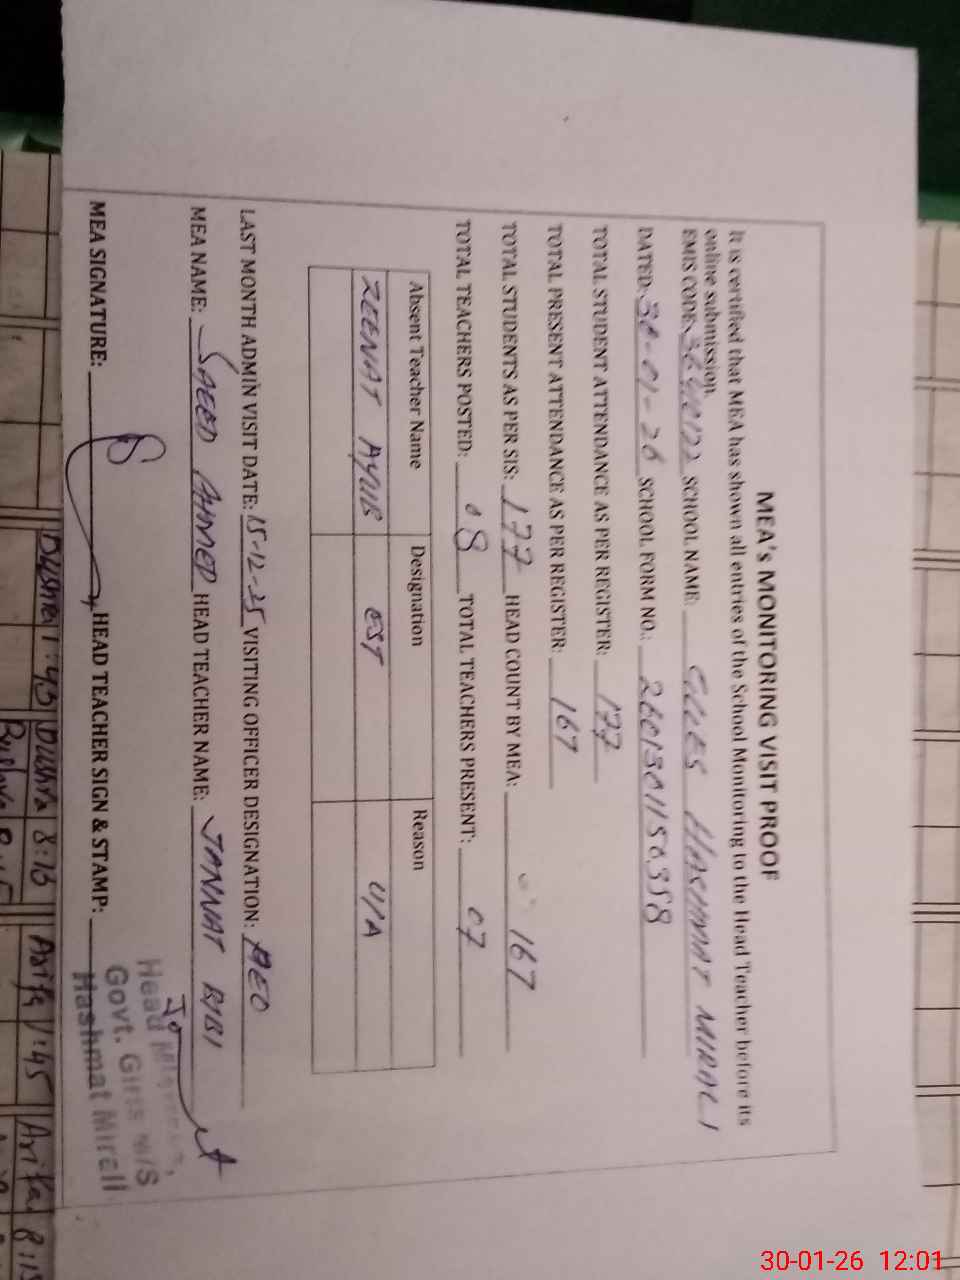 MEA's MONITORING VISIT PROOF
It is certified that MEA has shown all entries of the School Monitoring to the Head Teacher before its
online submission.
EMIS CODE: SCHOOL NAME: HASHMAT MIRALI
DATED: 30-01-26 SCHOOL FORM NO.:
TOTAL STUDENT ATTENDANCE AS PER REGISTER: 177
TOTAL PRESENT ATTENDANCE AS PER REGISTER: 167
TOTAL STUDENTS AS PER SIS: 177 HEAD COUNT BY MEA: 167
TOTAL TEACHERS POSTED: 08 TOTAL TEACHERS PRESENT: 07
Absent Teacher Name Designation Reason
ZEENAT AYUB EST U/A
LAST MONTH ADMIN VISIT DATE: 15-12-25 VISITING OFFICER DESIGNATION: AEO
MEA NAME: SAEED AHMED HEAD TEACHER NAME: JANNAT BIBI
MEA SIGNATURE: HEAD TEACHER SIGN & STAMP:
Head
Govt. Girls M/S
Hashmat Mirali
Dushra 8:16 Arifa 1:45
30-01-26 12:01